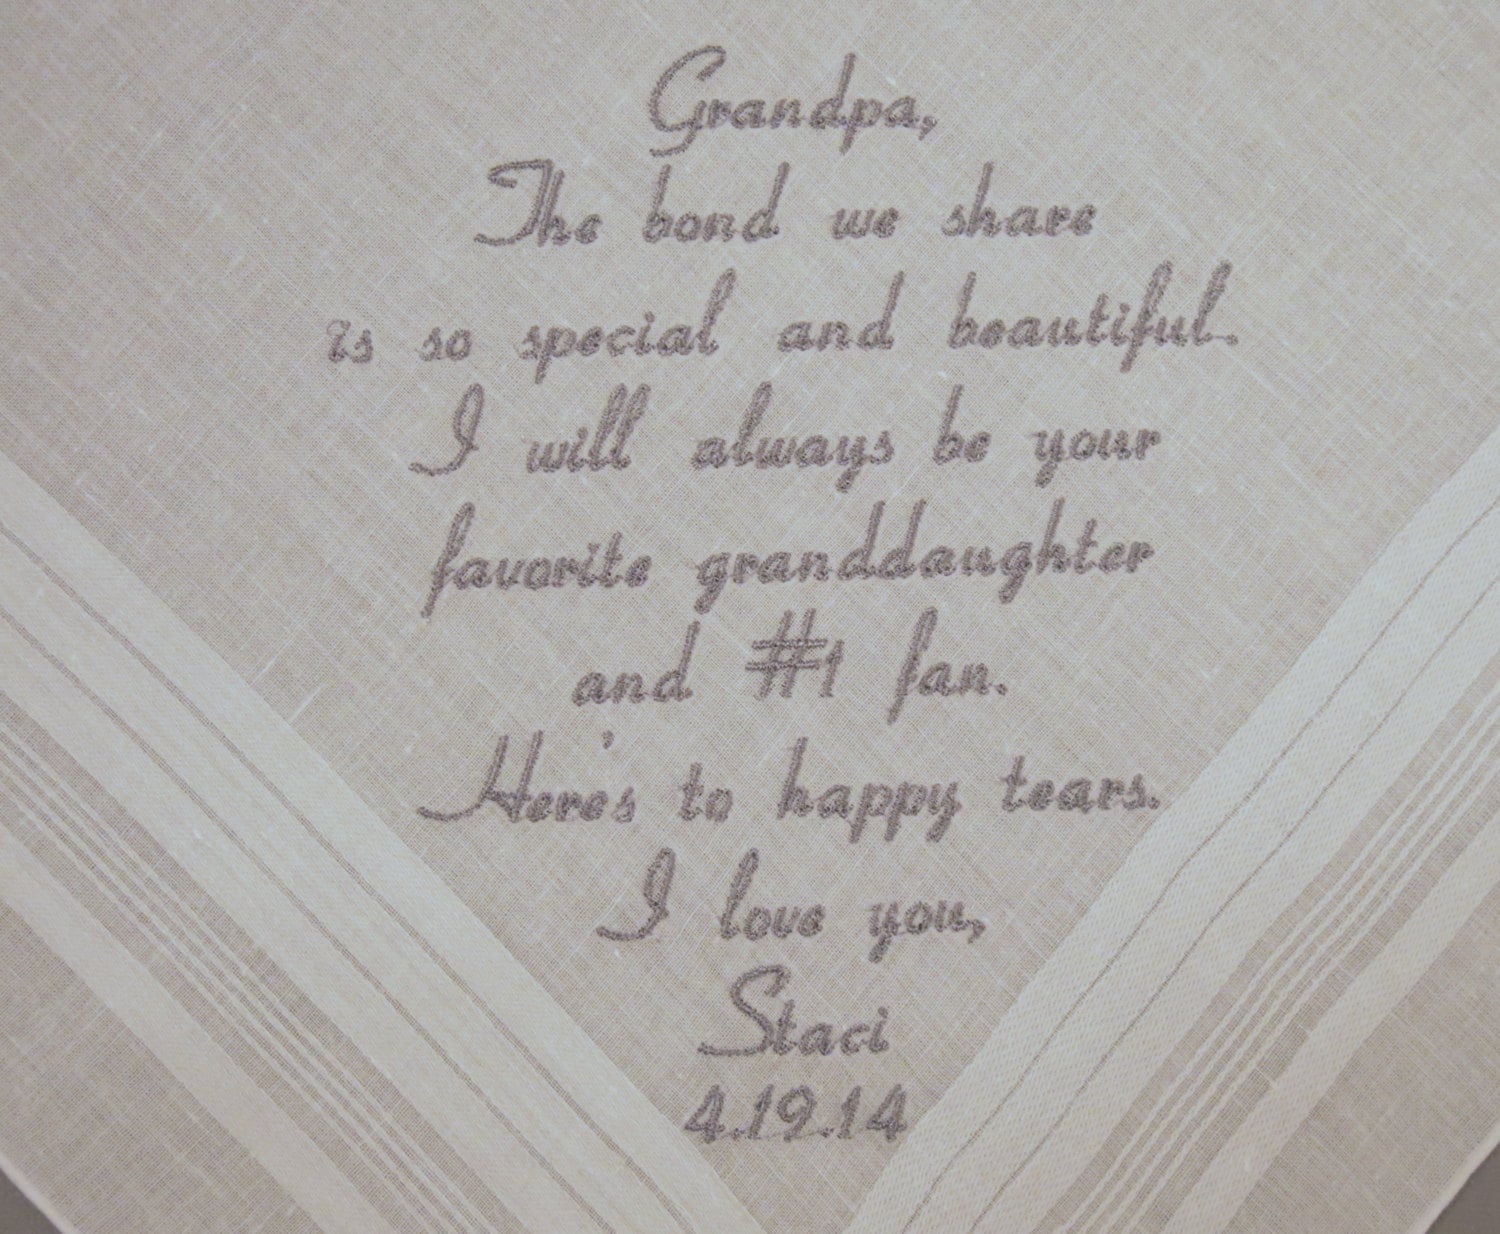 Grandpa,
The bond we share
is so special and beautiful.
I will always be your
favorite granddaughter
and #1 fan.
Here's to happy tears.
I love you,
Staci
4.19.14